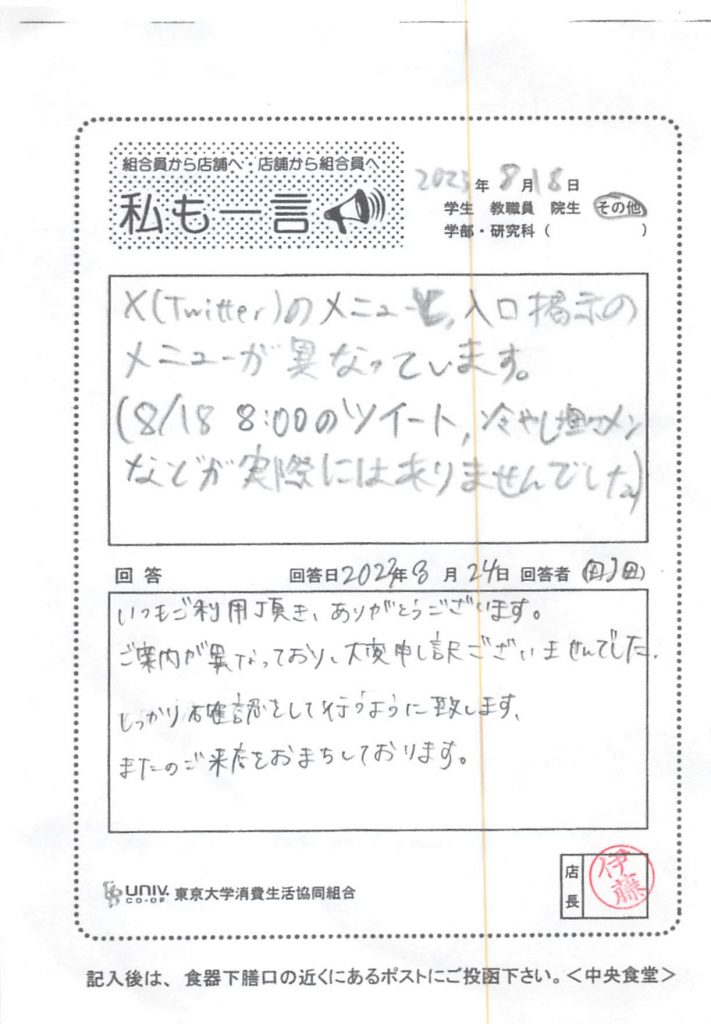 組合員から店舗へ・店舗から組合員へ
私も一言
2023年 8月18日
学生 教職員 院生 その他
学部・研究科( )
X(Twitter)のメニューと,入口掲示の
メニューが異なっています。
(8/18 8:00のツイート,冷やし塩ラーメン
などが実際にはありませんでした)
回答 回答日2023年8月24日 回答者
いつもご利用頂き、ありがとうございます。
ご案内が異なっており、大変申し訳ございませんでした.
しっかり確認をして行うように致します、
またのご来店をおまちしております。
UNIV. CO-OP 東京大学消費生活協同組合
店長
伊藤
記入後は、食器下膳口の近くにあるポストにご投函下さい。<中央食堂>